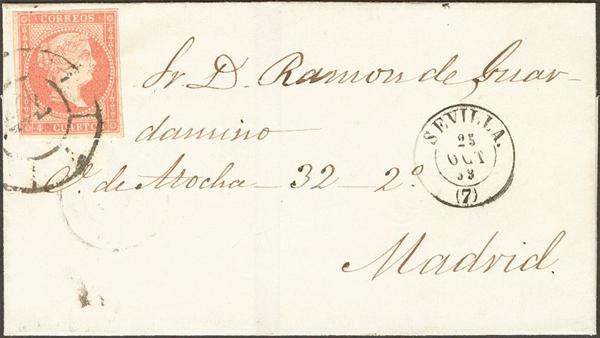 CORREOS
4 CUARTOS
Sr D. Ramon de Guar-
damino
C.ª de Atocha - 32 - 2º
SEVILLA.
25
OCT
(7)
Madrid.